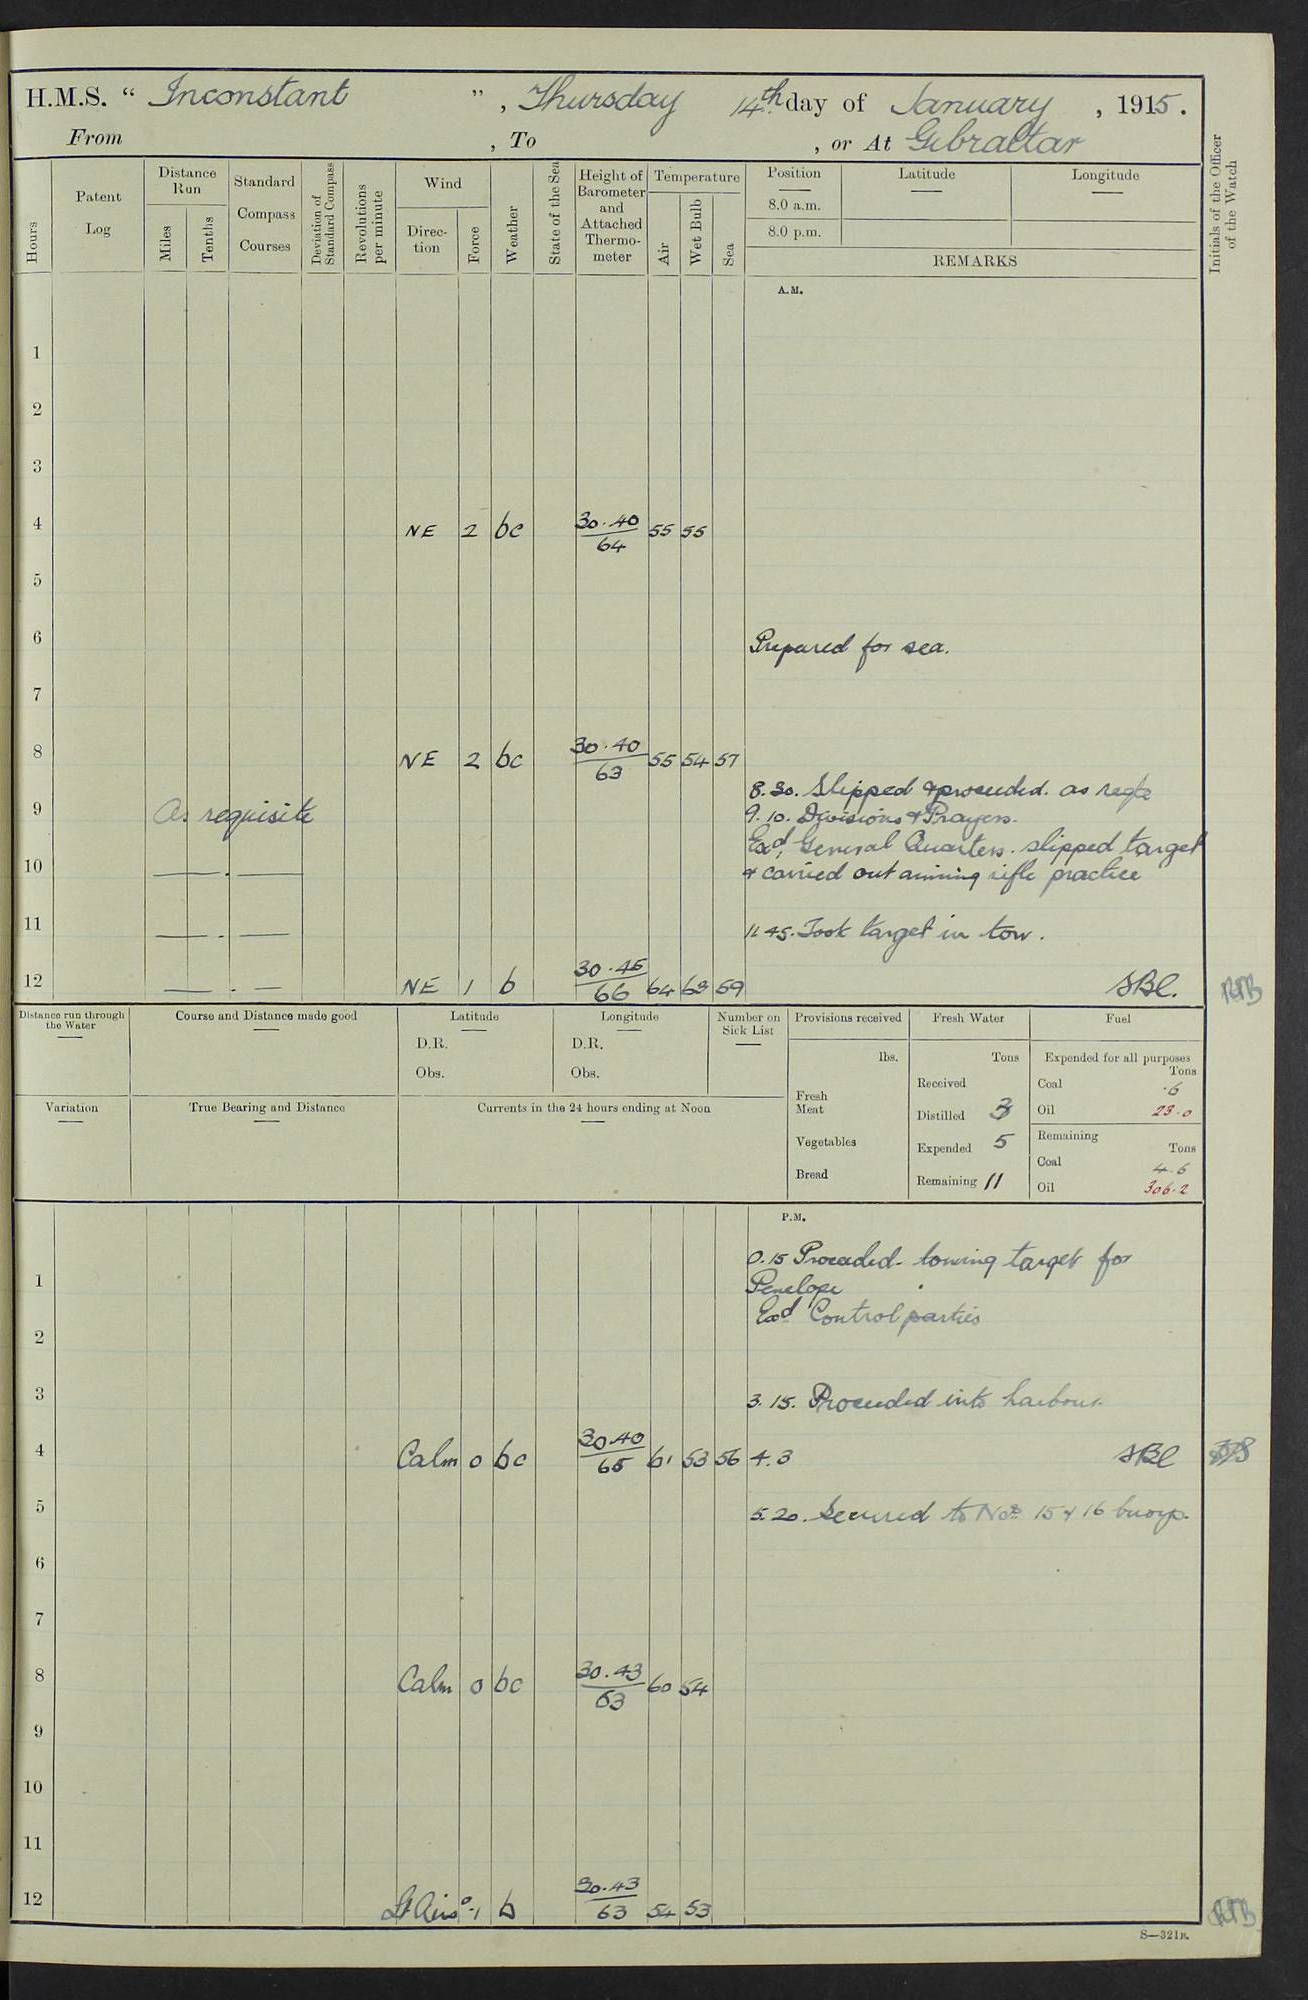 H.M.S. “ Inconstant ” , Thursday 14th day of January , 1915.
From , To , or At Gibraltar
Hours
Patent Log
Distance Run
Miles
Tenths
Standard Compass Courses
Deviation of Standard Compass
Revolutions per minute
Wind
Direc-tion
Force
Weather
State of the Sea
Height of Barometer and Attached Thermo-meter
Temperature
Air
Wet Bulb
Sea
Position
8.0 a.m.
8.0 p.m.
Latitude
Longitude
REMARKS
Initials of the Officer of the Watch
A.M.
1
2
3
4 NE 2 bc 30.40 64 55 55
5
6 Prepared for sea.
7
8 NE 2 bc 30.40 63 55 54 57
8.30. Slipped & proceeded. as reqte
9 As requisite 9.10. Divisions & Prayers.
Exd. General Quarters. slipped target
10 & carried out aiming rifle practice
11 11.45. Took target in tow.
12 NE 1 b 30.46 66 64 63 59 SBC. RTB
Distance run through the Water
Course and Distance made good
Latitude
D.R.
Obs.
Longitude
D.R.
Obs.
Number on Sick List
Provisions received
lbs.
Fresh Meat
Vegetables
Bread
Fresh Water
Tons
Received
Distilled 3
Expended 5
Remaining 11
Fuel
Expended for all purposes
Tons
Coal .6
Oil 23.0
Remaining
Tons
Coal 4.6
Oil 306.2
Variation
True Bearing and Distance
Currents in the 24 hours ending at Noon
P.M.
0.15 Proceeded. towing target for
1 Penelope
Exd Control parties
2
3 3.15. Proceeded into harbour.
4 Calm 0 bc 30.40 65 61 53 56 4.3 SBC
5 5.20. Secured to Nos 15 & 16 buoys.
6
7
8 Calm 0 bc 30.43 63 60 54
9
10
11
12 Lt Airs 0-1 b 30.43 63 54 53 RTB
S—321B.